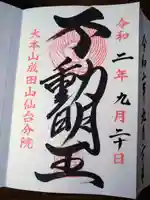 令和二年九月二十日
不動明王
大本山成田山仙台分院